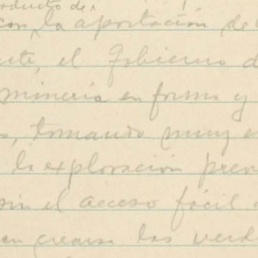 producto de
con la aportación de
el Gobierno d
minería en forma y
s, tomando muy e
la exploración prev
sin el acceso fácil
en crearse las verd